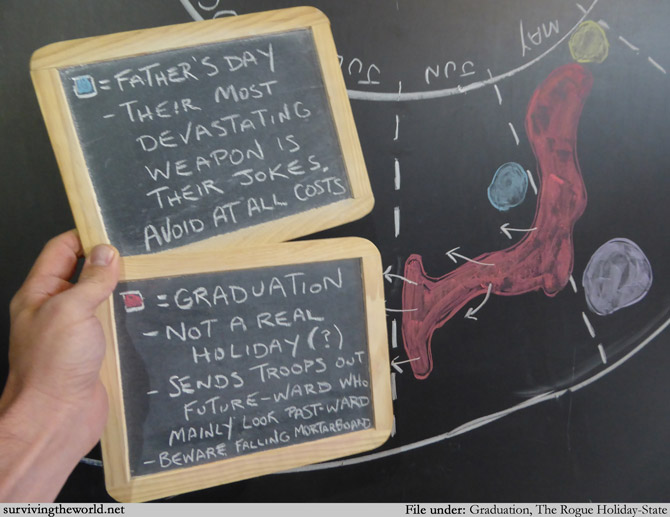 = FATHER'S DAY
- THEIR MOST
DEVASTATING
WEAPON IS
THEIR JOKES.
AVOID AT ALL COSTS
= GRADUATION
- NOT A REAL
HOLIDAY (?)
- SENDS TROOPS OUT
FUTURE-WARD WHO
MAINLY LOOK PAST-WARD
- BEWARE FALLING MORTARBOARD
MAY
JUN
JU
survivingtheworld.net
File under: Graduation, The Rogue Holiday-State